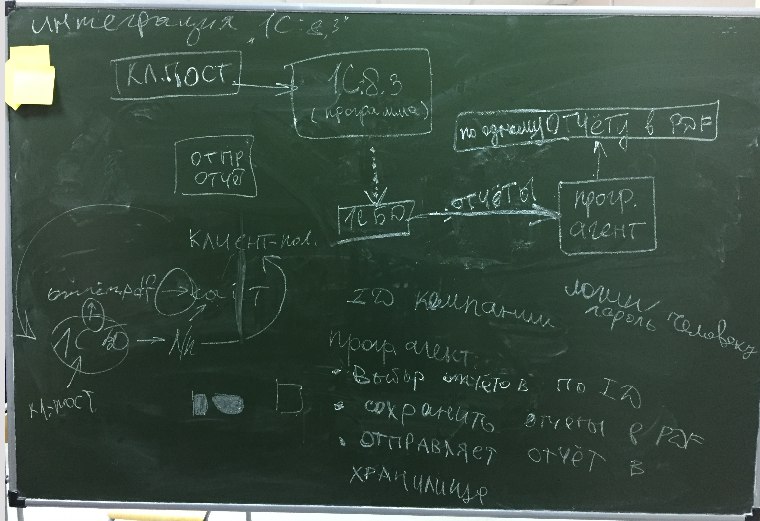 интеграция "1С:8.3"
КЛ.ПОСТ.
1С.8.3
(программа)
по одному ОТЧЁТУ в PDF
ОТПР
ОТЧЁТ
1С БД
ОТЧЁТЫ
прогр.
агент
КЛИЕНТ-пол.
1С БД
кл.пост
ID компании
логин/
пароль человеку
прогр.агент
• Выбор отчётов по ID
• сохранить отчеты в PDF
• ОТПРАВЛЯЕТ ОТЧЁТ В
ХРАНИЛИЩЕ